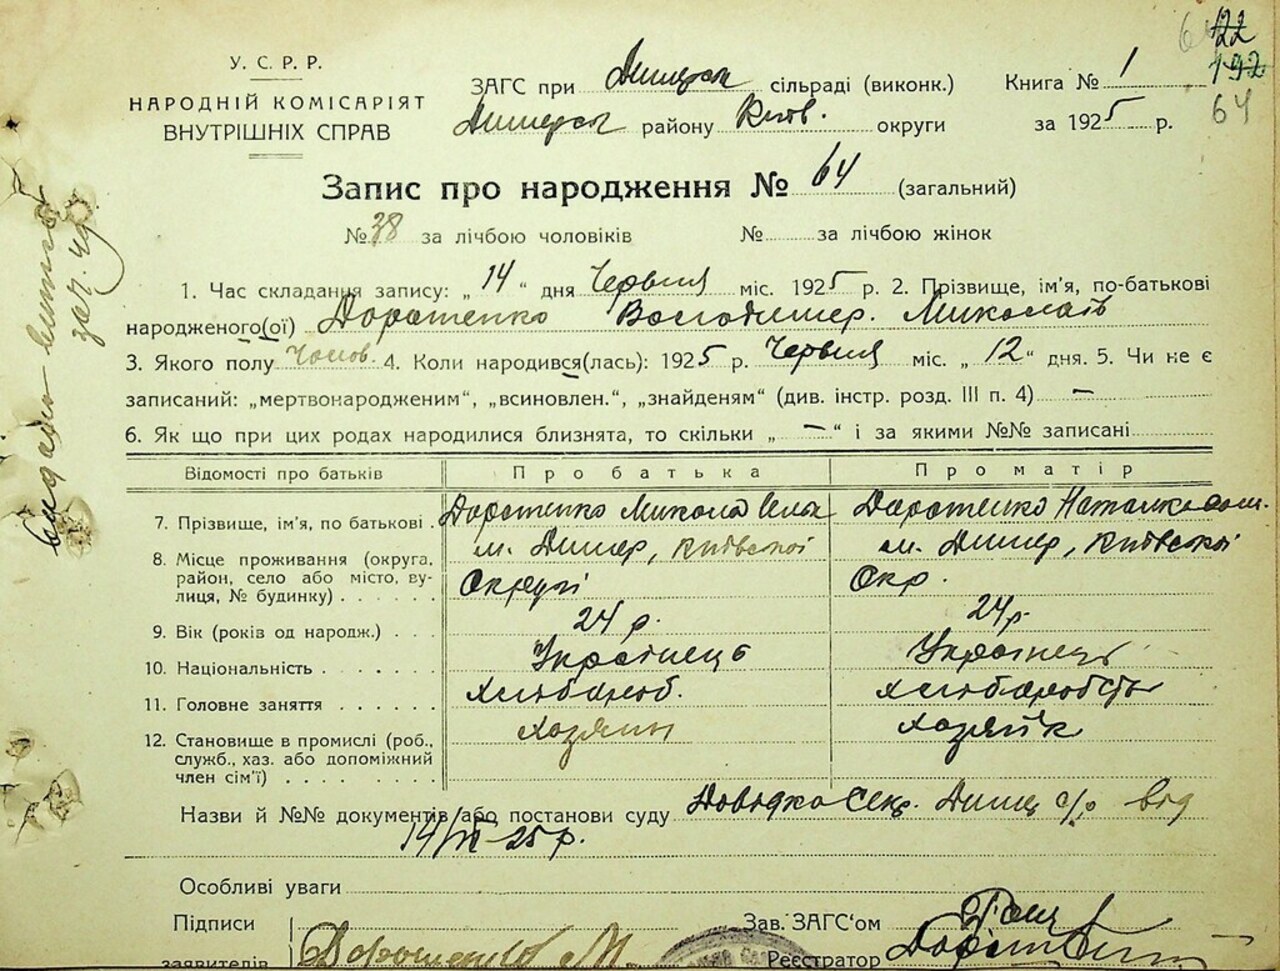 22
192
64
У. С. Р. Р.
НАРОДНІЙ КОМІСАРІЯТ
ВНУТРІШНІХ СПРАВ
ЗАГС при Димерськ сільраді (виконк.) Книга № 1
Димерськ району Київ. округи за 1925 р.
Запис про народження № 64 (загальний)
№ 38 за лічбою чоловіків № за лічбою жінок
1. Час складання запису: „ 14 “ дня Червня міс. 1925 р. 2. Прізвище, ім'я, по-батькові
народженого(ої) Доротенко Володимер. Миколаїв
3. Якого полу Чолов. 4. Коли народився(лась): 1925 р. Червня міс. „ 12 “ дня. 5. Чи не є
записаний: „мертвонародженим“, „всиновлен.“, „знайденям“ (див. інстр. розд. III п. 4) —
6. Як що при цих родах народилися близнята, то скільки „ — “ і за якими №№ записані
Відомості про батьків Про батька Про матір
7. Прізвище, ім'я, по батькові . Доротенко Микола Доротенко Наталка
8. Місце проживання (округа, м. Димер, Київської м. Димер, Київської
район, село або місто, ву- Округи Окр.
лиця, № будинку) . . . . . .
9. Вік (років од народж.) . . . 24 р. 24 р.
10. Національність . . . . . . Українець Українець
11. Головне заняття . . . . . . Хлібороб. Хлібороб
12. Становище в промислі (роб., хозяин хозяйк
служб., хаз. або допоміжний
член сім'ї) . . . . . . . .
Назви й №№ документів або постанови суду Довідка Секр. Димер с/р від
14/VI–25 р.
Особливі уваги
Підписи Зав. ЗАГС'ом
заявителів Доротенко М. Реєстратор
видано витяг